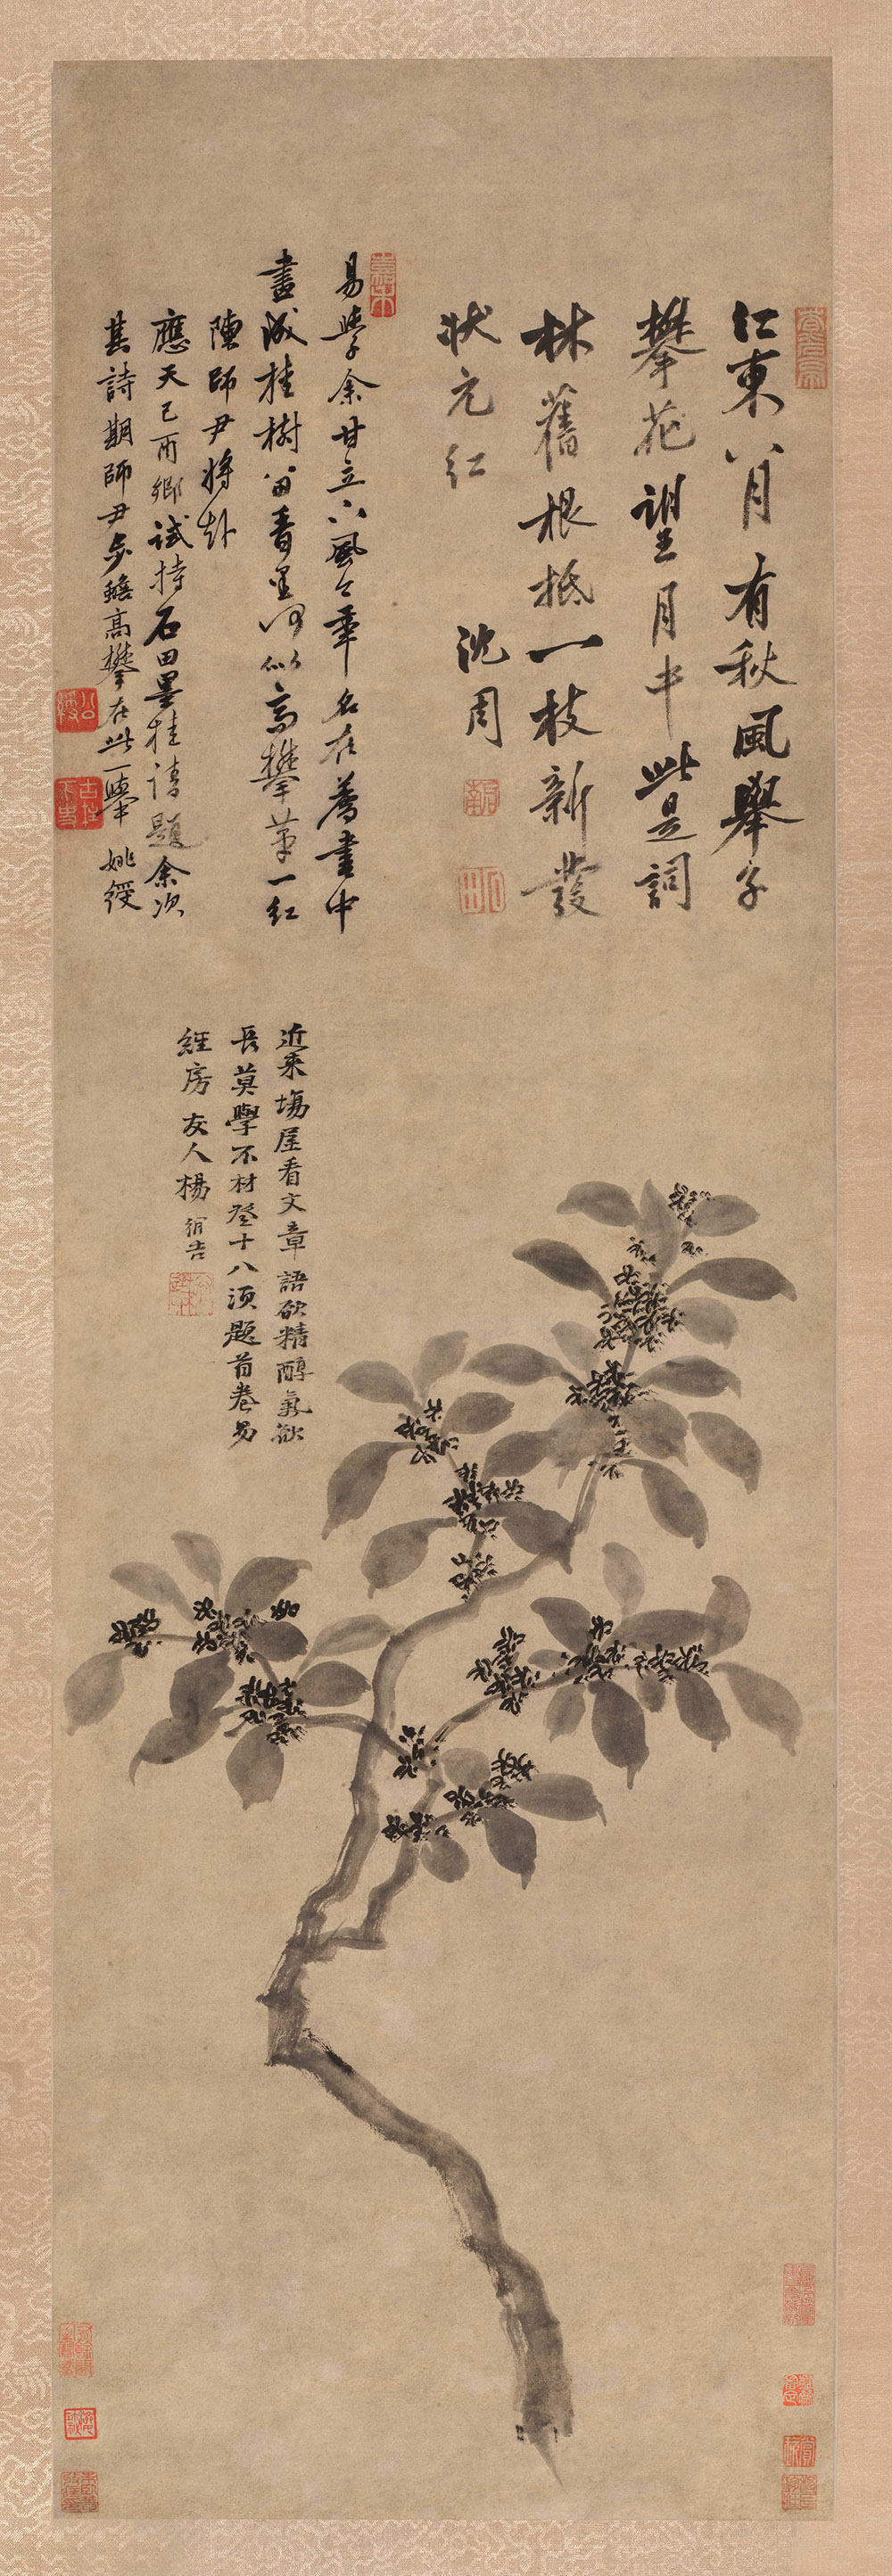 江東八月有秋風舉子
攀花望月中此是詞
林舊根抵一枝新發
狀元紅 沈周
易學余甘立下風今年名在薦書中
畫成桂樹留看里何似高攀第一紅
陳師尹將赴
應天己酉鄉試持石田墨桂請題余次
其詩期師尹步蟾高攀在此一舉 姚綬
近來塲屋看文章語欲精醇氣欲
長莫學不材登十八須題首卷易
經房 友人楊